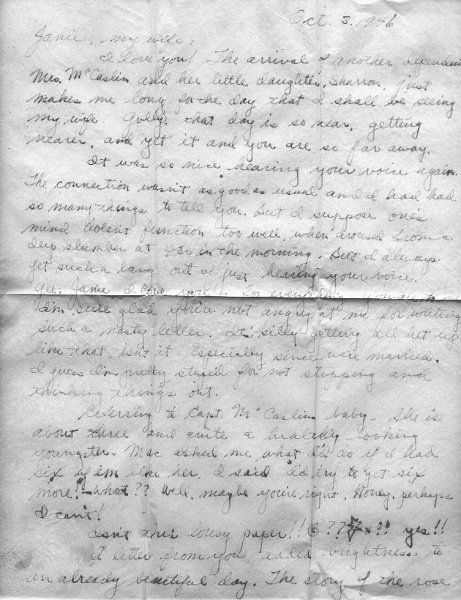 Oct. 3, 19-6
Janie, my wife:
I love you! The arrival of another dependent
Mrs. McCaslin and her little daughter, Sharron, just
makes me long for the day that I shall be seeing
my wife. Golly, that day is so near, getting
nearer, and yet it and you are so far away.
It was so nice hearing your voice again.
The connection wasn't as good as usual and I had had
so many things to tell you. But I suppose one's
mind doesn't function too well, when aroused from a
deep slumber at in the morning. But I always
get such a bang out of just hearing your voice.
Gee, Janie, I love you for everything you are to
I'm sure glad you're not angry at me for writing
such a nasty letter. It's silly getting all het up
like that, isn't it. Especially since we're married.
I guess I'm pretty stupid for not stopping and
thinking things out.
Referring to Capt. McCaslin baby. She is
about three and quite a healthy looking
youngster. Mac asked me what I'd do if I had
six of 'em like her. I said I'd try to get six
more! - what?? Well, maybe you're right, Honey, perhaps
I can't!
Isn't this lousy paper!! ??? yes!!
A letter from you added brightness to
an already beautiful day. The story of the rose